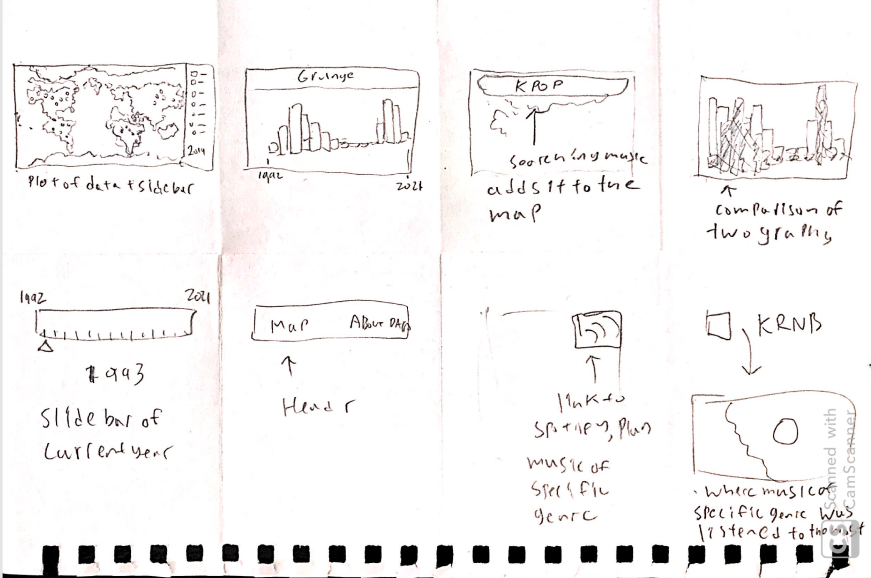 2014
Plot of data + sidebar
Grunge
1992
2021
KPOP
Searching music
adds it to the
map
Comparison of
two graphs
1992
2021
1993
Slidebar of
Current year
Map
About
Header
link to
Spotify, Play
music of
specific
genre
KRNB
where music of
specific genre was
listened to the most
Scanned with
CamScanner
CS